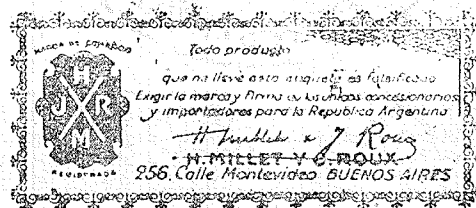 MARCA DE COMERCIO
H
J R
M
REGISTRADA
Todo producto
que no lleve esta etiqueta es falsificado
Exigir la marca y firma de los únicos concesionarios
y importadores para la Republica Argentina
H. MILLET Y C. ROUX
256, Calle Montevideo BUENOS AIRES